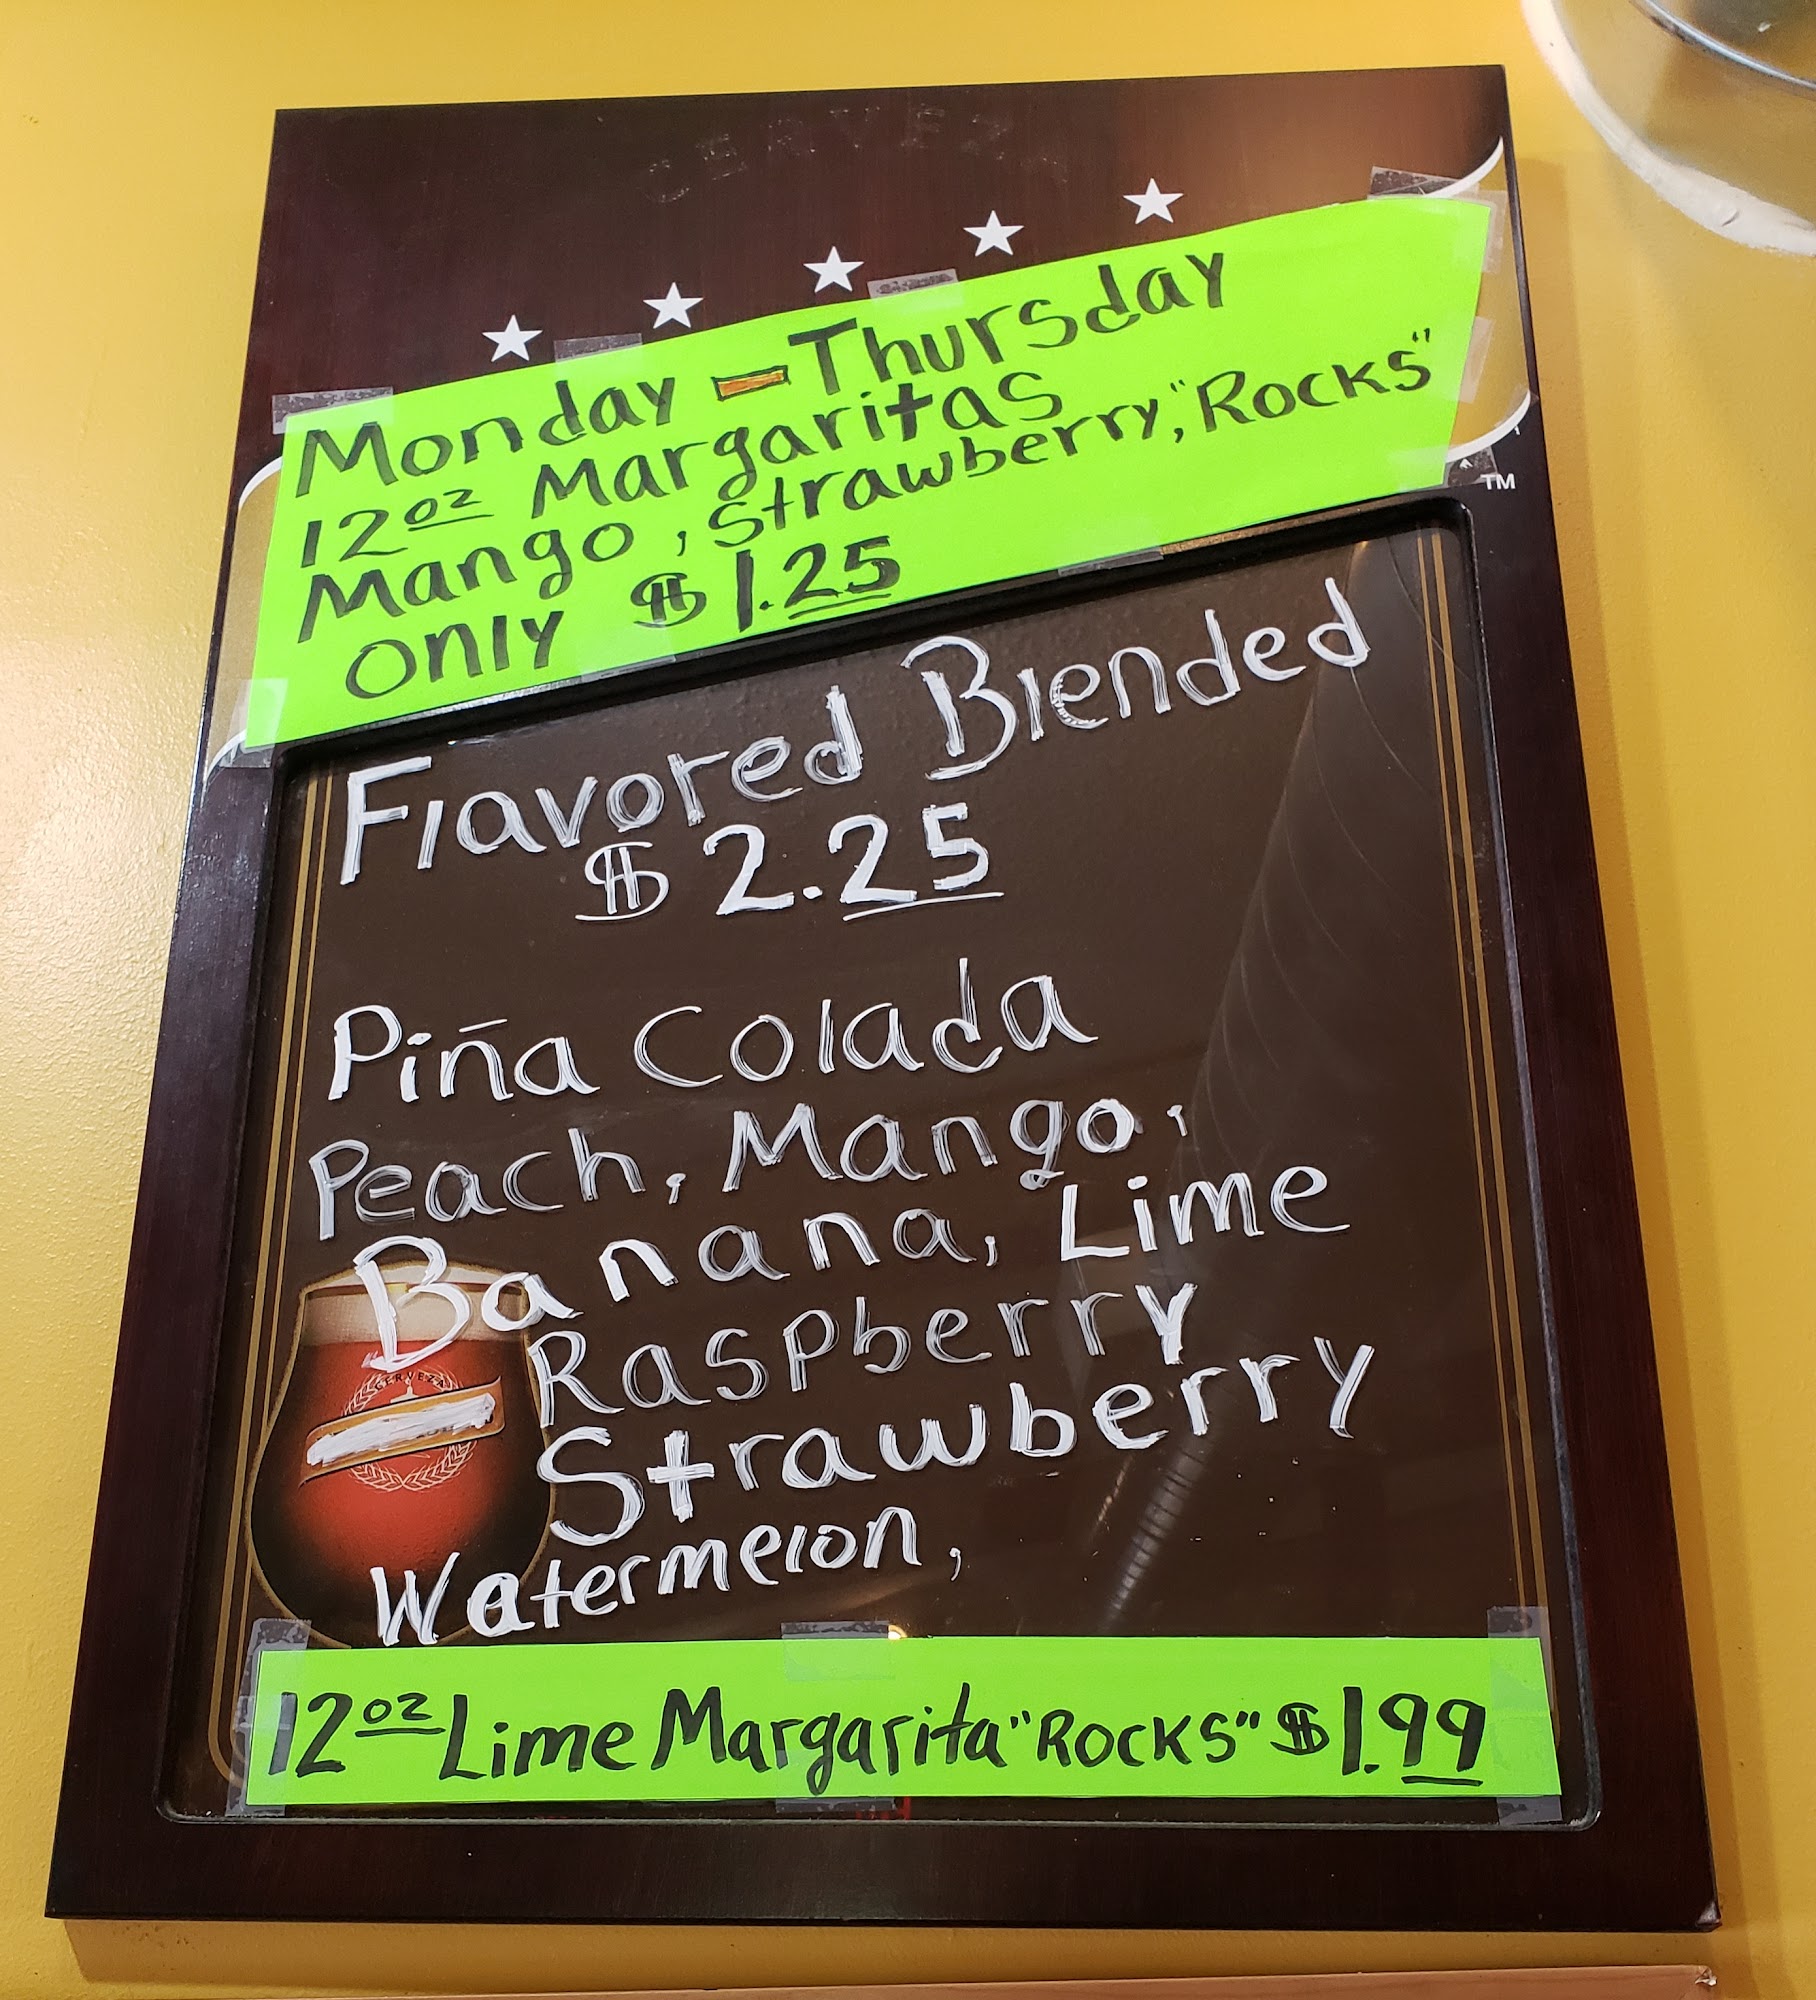 CERVEZA
Monday - Thursday
12oz Margaritas
Mango, Strawberry, "Rocks"
only $1.25
TM
Flavored Blended
$2.25
Piña Colada
Peach, Mango,
Banana, Lime
Raspberry
Strawberry
Watermelon,
CERVEZA
12oz Lime Margarita "Rocks" $1.99